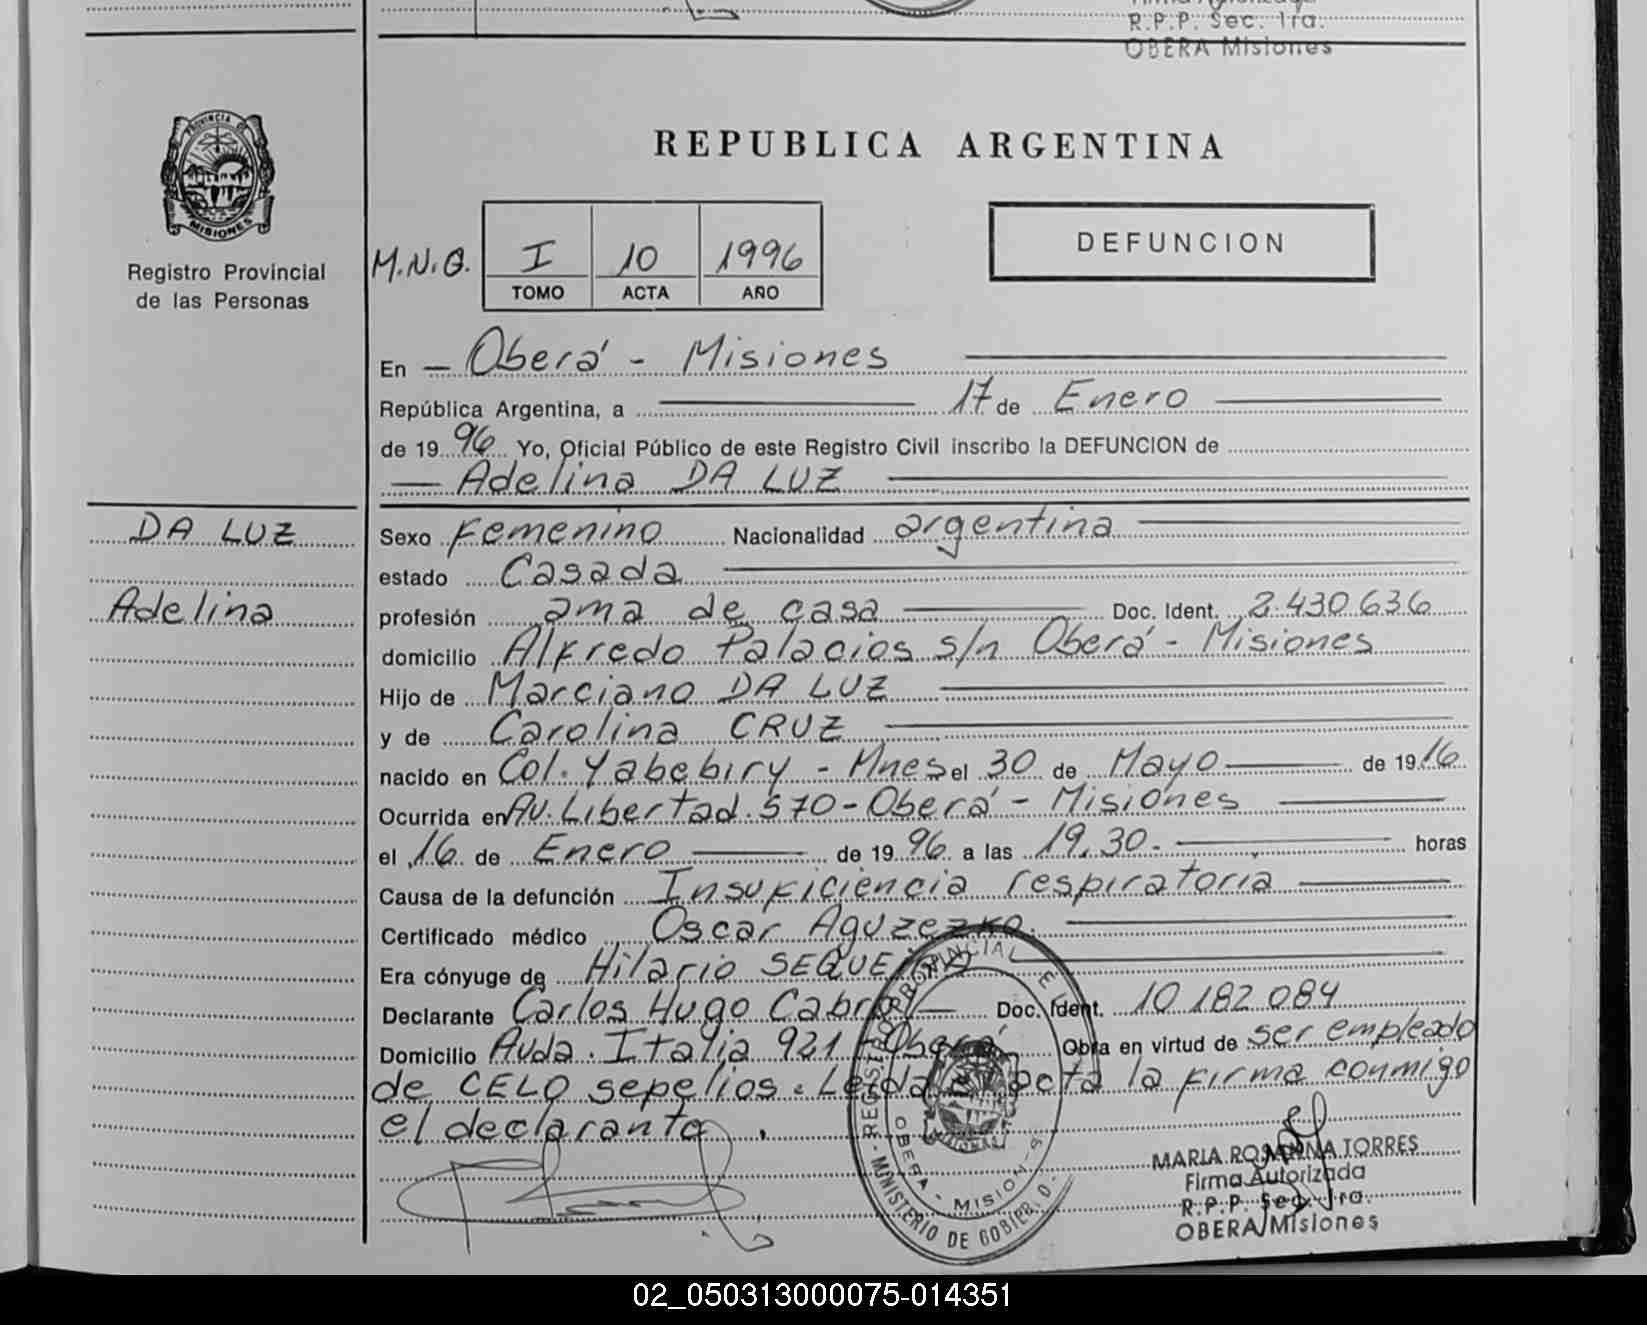 R.P.P. Sec. 1ra.
OBERA Misiones
PROVINCIA DE
MISIONES
Registro Provincial
de las Personas
REPUBLICA ARGENTINA
M.N.G. I 10 1996
TOMO ACTA AÑO
DEFUNCION
En — Oberá - Misiones
República Argentina, a 17 de Enero
de 1996 Yo, Oficial Público de este Registro Civil inscribo la DEFUNCION de
— Adelina DA LUZ
DA LUZ
Adelina
Sexo Femenino Nacionalidad argentina
estado Casada
profesión ama de casa Doc. Ident. 2.430.636
domicilio Alfredo Palacios s/n Oberá - Misiones
Hijo de Marciano DA LUZ
y de Carolina CRUZ
nacido en Col. Yabebiry - Mnes el 30 de Mayo de 1916
Ocurrida en Av. Libertad 570 - Oberá - Misiones
el 16 de Enero de 1996 a las 19,30.- horas
Causa de la defunción Insuficiencia respiratoria
Certificado médico Oscar Aguzezko
Era cónyuge de Hilario
Declarante Carlos Hugo Cabral Doc. Ident. 10.182.084
Domicilio Avda. Italia 921 - Oberá Obra en virtud de ser empleado
de CELO sepelios. Leída el acta la firma conmigo
el declarante.
REGISTRO PROVINCIAL
OBERA - MISIONES
MINISTERIO DE GOBIERNO
MARIA ROSANNA TORRES
Firma Autorizada
R.P.P. Sec. 1ra.
OBERA/Misiones
02_050313000075-014351